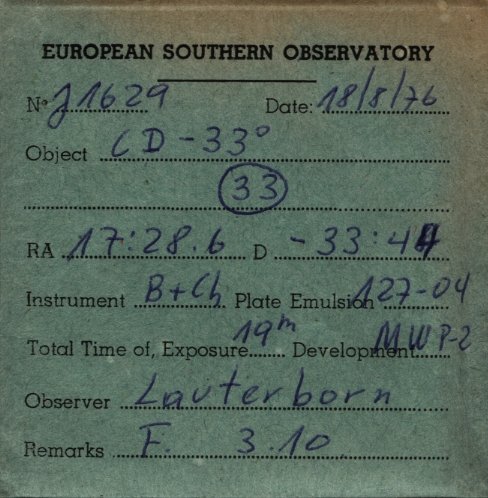 EUROPEAN SOUTHERN OBSERVATORY
N° J1629 Date: 18/8/76
Object CD-33°
33
RA 17:28.6 D -33:44
Instrument B+Ch Plate Emulsion 127-04
Total Time of, Exposure 19m Development MWP-2
Observer Lauterborn
Remarks F. 3.10